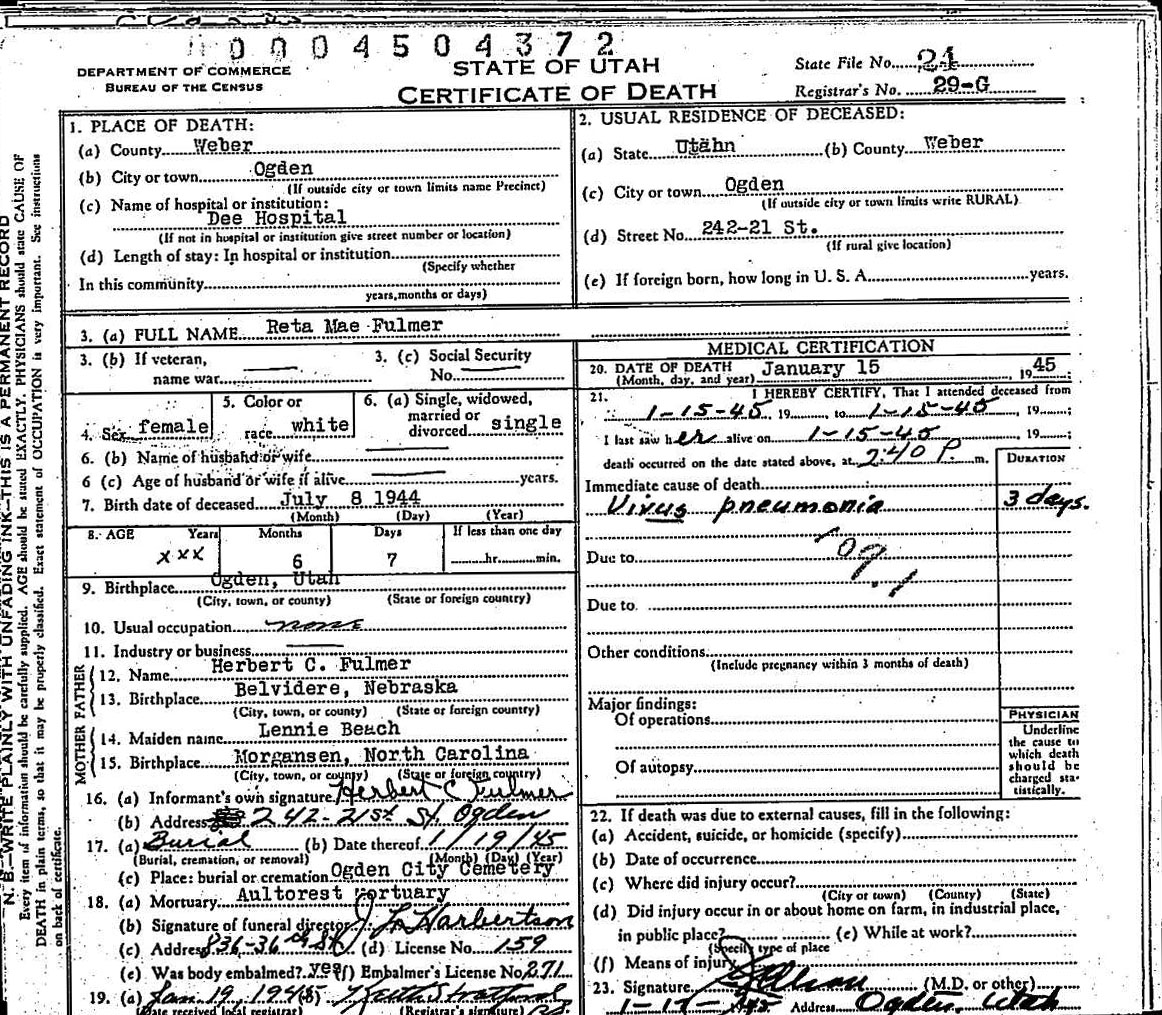 0 0 0 4 5 0 4 3 7 2
DEPARTMENT OF COMMERCE
BUREAU OF THE CENSUS
STATE OF UTAH
CERTIFICATE OF DEATH
State File No. 21
Registrar's No. 29-G
N. B.—WRITE PLAINLY WITH UNFADING INK—THIS IS A PERMANENT RECORD
Every item of information should be carefully supplied. AGE should be stated EXACTLY. PHYSICIANS should state CAUSE OF
DEATH in plain terms, so that it may be properly classified. Exact statement of OCCUPATION is very important. See instructions
on back of certificate.
1. PLACE OF DEATH:
(a) County Weber
(b) City or town Ogden
(If outside city or town limits name Precinct)
(c) Name of hospital or institution:
Dee Hospital
(If not in hospital or institution give street number or location)
(d) Length of stay: In hospital or institution
(Specify whether
In this community
years, months or days)
2. USUAL RESIDENCE OF DECEASED:
(a) State Utahn (b) County Weber
(c) City or town Ogden
(If outside city or town limits write RURAL)
(d) Street No. 242-21 St.
(If rural give location)
(e) If foreign born, how long in U. S. A. years.
3. (a) FULL NAME Reta Mae Fulmer
3. (b) If veteran,
name war
3. (c) Social Security
No.
4. Sex female
5. Color or
race white
6. (a) Single, widowed,
married or
divorced single
6. (b) Name of husband or wife
6 (c) Age of husband or wife if alive years.
7. Birth date of deceased July 8 1944
(Month) (Day) (Year)
8. AGE Years Months Days If less than one day
xxx 6 7 hr. min.
9. Birthplace Ogden, Utah
(City, town, or county) (State or foreign country)
10. Usual occupation none
11. Industry or business
FATHER
12. Name Herbert C. Fulmer
13. Birthplace Belvidere, Nebraska
(City, town, or county) (State or foreign country)
MOTHER
14. Maiden name Lennie Beach
15. Birthplace Morgansen, North Carolina
(City, town, or county) (State or foreign country)
16. (a) Informant's own signature Herbert C Fulmer
(b) Address 242-21st St Ogden
17. (a) Burial (b) Date thereof 1/19/45
(Burial, cremation, or removal) (Month) (Day) (Year)
(c) Place: burial or cremation Ogden City Cemetery
18. (a) Mortuary Aultorest Mortuary
(b) Signature of funeral director J L Harbertson
(c) Address 836-36th St (d) License No. 159
(e) Was body embalmed? yes (f) Embalmer's License No. 271
19. (a) Jan 19, 1945 (b)
(Date received local registrar) (Registrar's signature)
MEDICAL CERTIFICATION
20. DATE OF DEATH January 15, 1945
(Month, day, and year)
21. I HEREBY CERTIFY, That I attended deceased from
1-15-45, 19 , to 1-15-45, 19 ;
I last saw her alive on 1-15-45, 19 ;
death occurred on the date stated above, at 2:40 P. m.
DURATION
Immediate cause of death
Virus pneumonia 3 days.
Due to
Due to
Other conditions
(Include pregnancy within 3 months of death)
Major findings:
Of operations
Of autopsy
PHYSICIAN
Underline
the cause to
which death
should be
charged sta-
tistically.
22. If death was due to external causes, fill in the following:
(a) Accident, suicide, or homicide (specify)
(b) Date of occurrence
(c) Where did injury occur?
(City or town) (County) (State)
(d) Did injury occur in or about home on farm, in industrial place,
in public place? (e) While at work?
(Specify type of place
(f) Means of injury
23. Signature (M.D. or other)
1-17-1945 Address Ogden, Utah